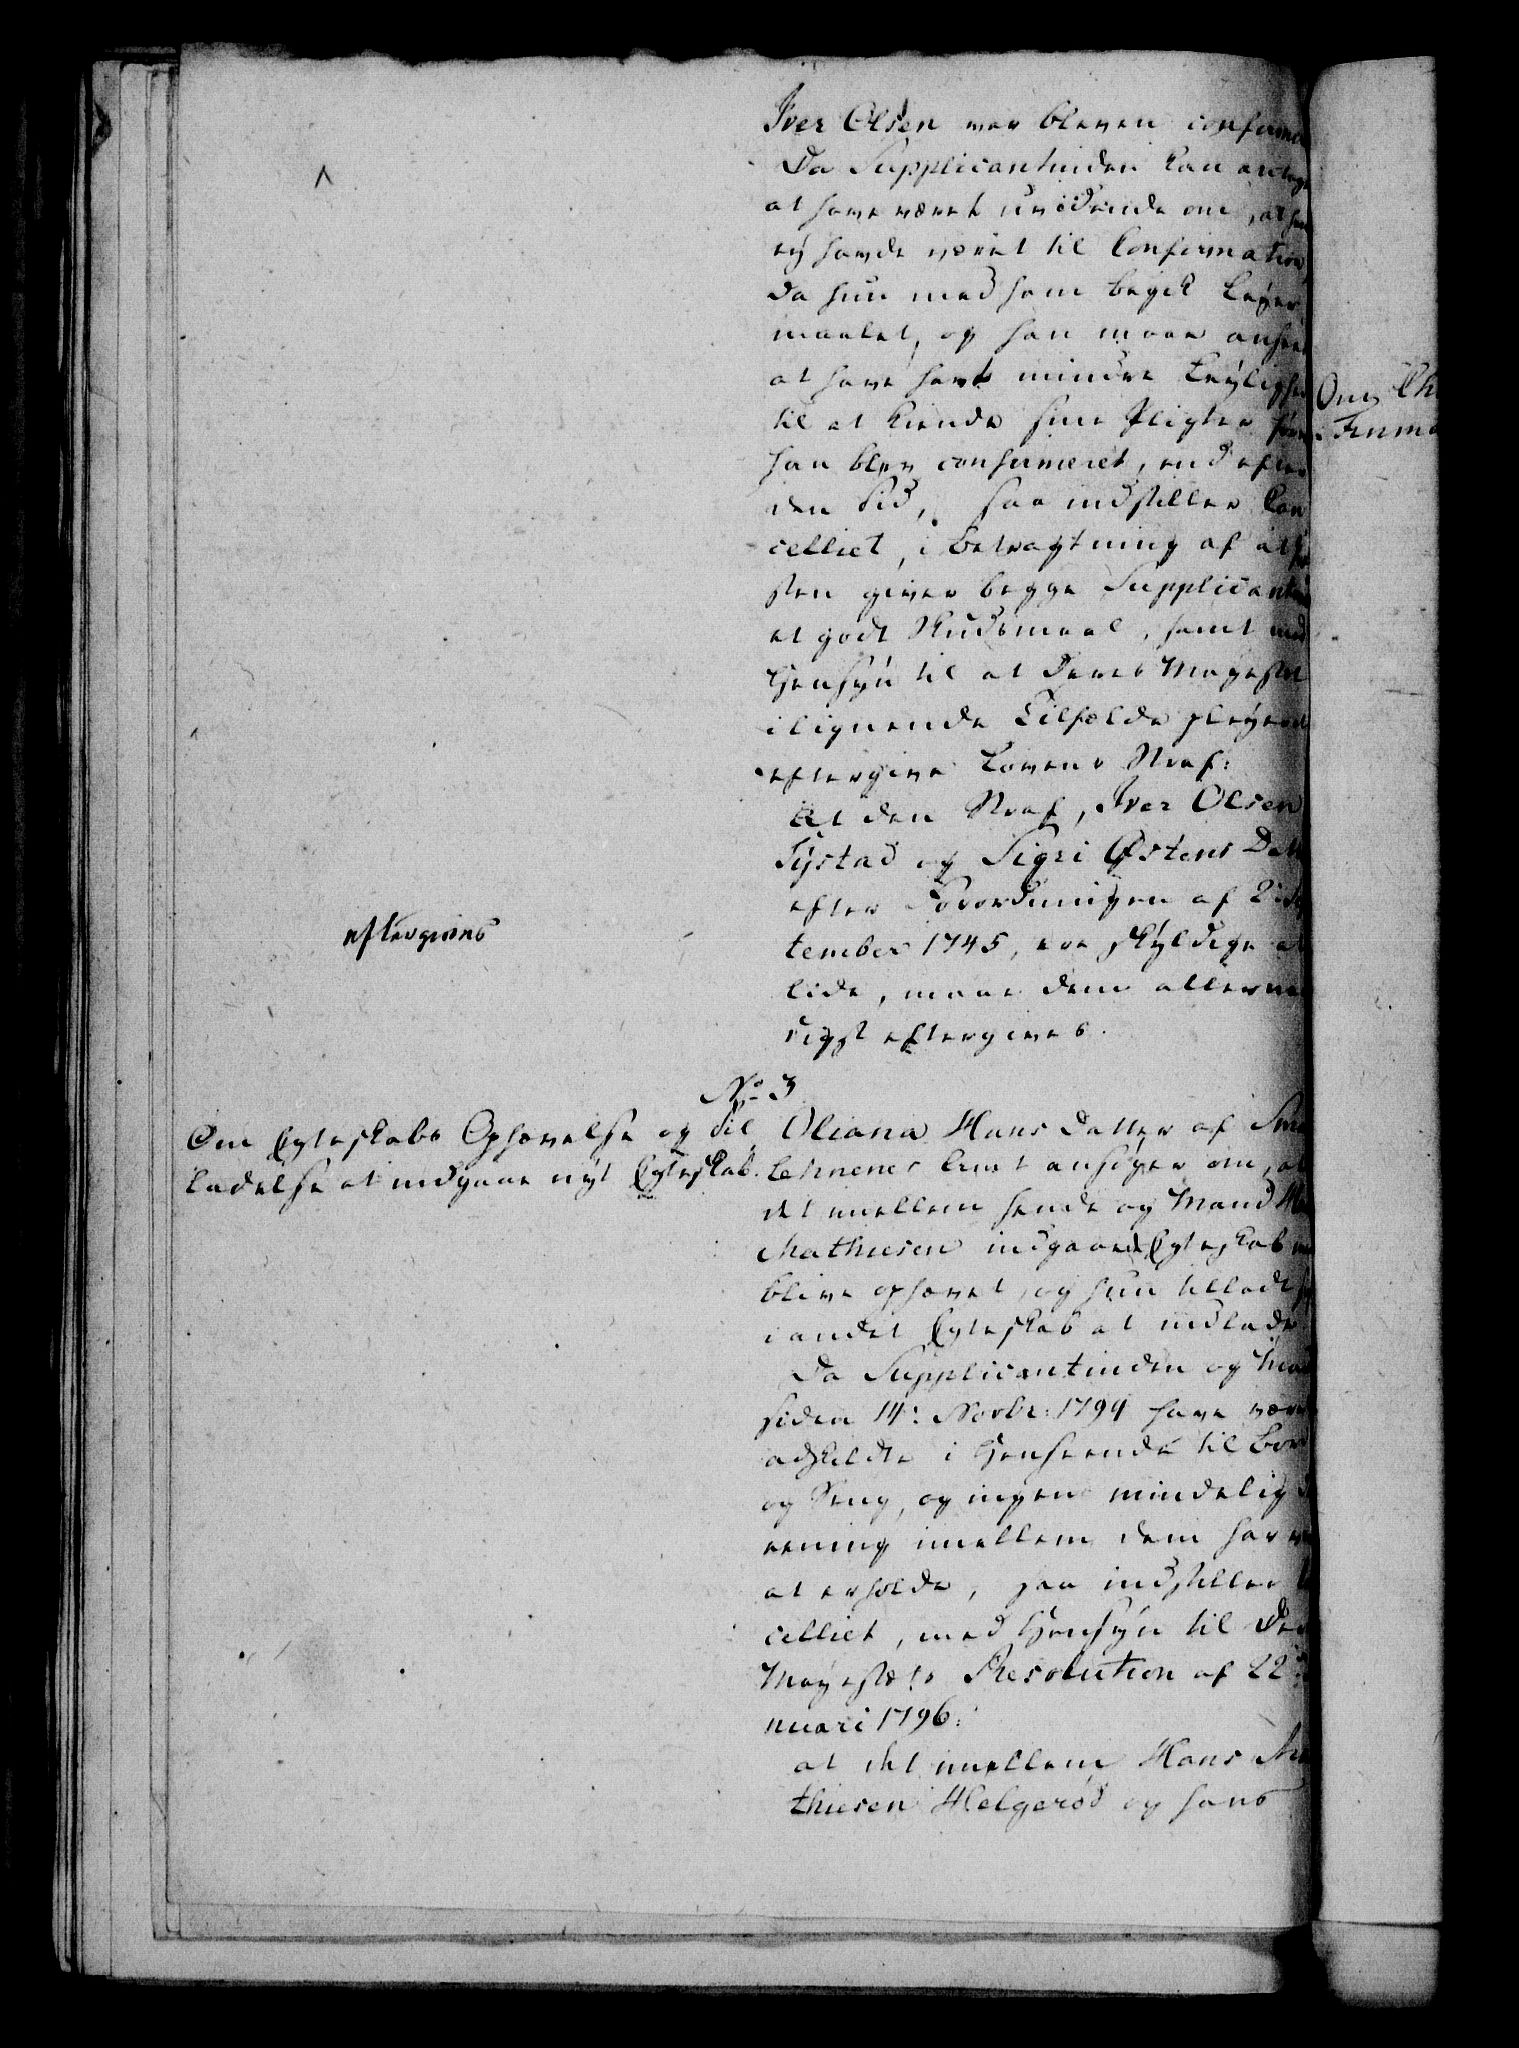 Iver Olsen var bleven confirme
Da Supplicantinden kan antag
at have været uvidende om, at han
ey havde været til Confirmation,
da hun med ham begik Leyer
maalet, og han maae ansees
at have havt mindre Leylighe
til at kiende sine Pligter før
han blev confirmeret, end efter
den Tid, saa indstiller Can
celliet, i Betragtning af at
sten giver begge Supplicant
et godt Skudsmaal, samt med
Hensyn til at Deres Mayestæt
i lignende Tilfælde pleyer
eftergive Lovens Straf:
At den Straf, Iver Olsen
Tystad og Sigri Østens Datt
efter Forordningen af 2
eftergives
tember 1745, ere skyldige at
lide, maae dem allerna
digst eftergives.
No 3
Om Egteskabs Ophævelse og Til
ladelse at indgaae nyt Egteskab.
Oliana Hans Datter af Sma
lehnenes Amt ansøger om, at
det imellem hende og Mand
Mathiesen indgaaede Egteskab
blive ophævet, og hun tilladt
i andet Egteskab at indlade
Da Supplicantinden og
siden 14: Novbr: 1794 have være
adskildte i Henseende til Bord
og Seng, og ingen mindelig
eening imellem dem har
at erholde, saa indstiller
celliet, med Hensyn til De
Mayestæts Resolution af 22
nuari 1796:
at det imellem Hans Ma
thiesen Helgerød og hans
Om Ch
i Finma